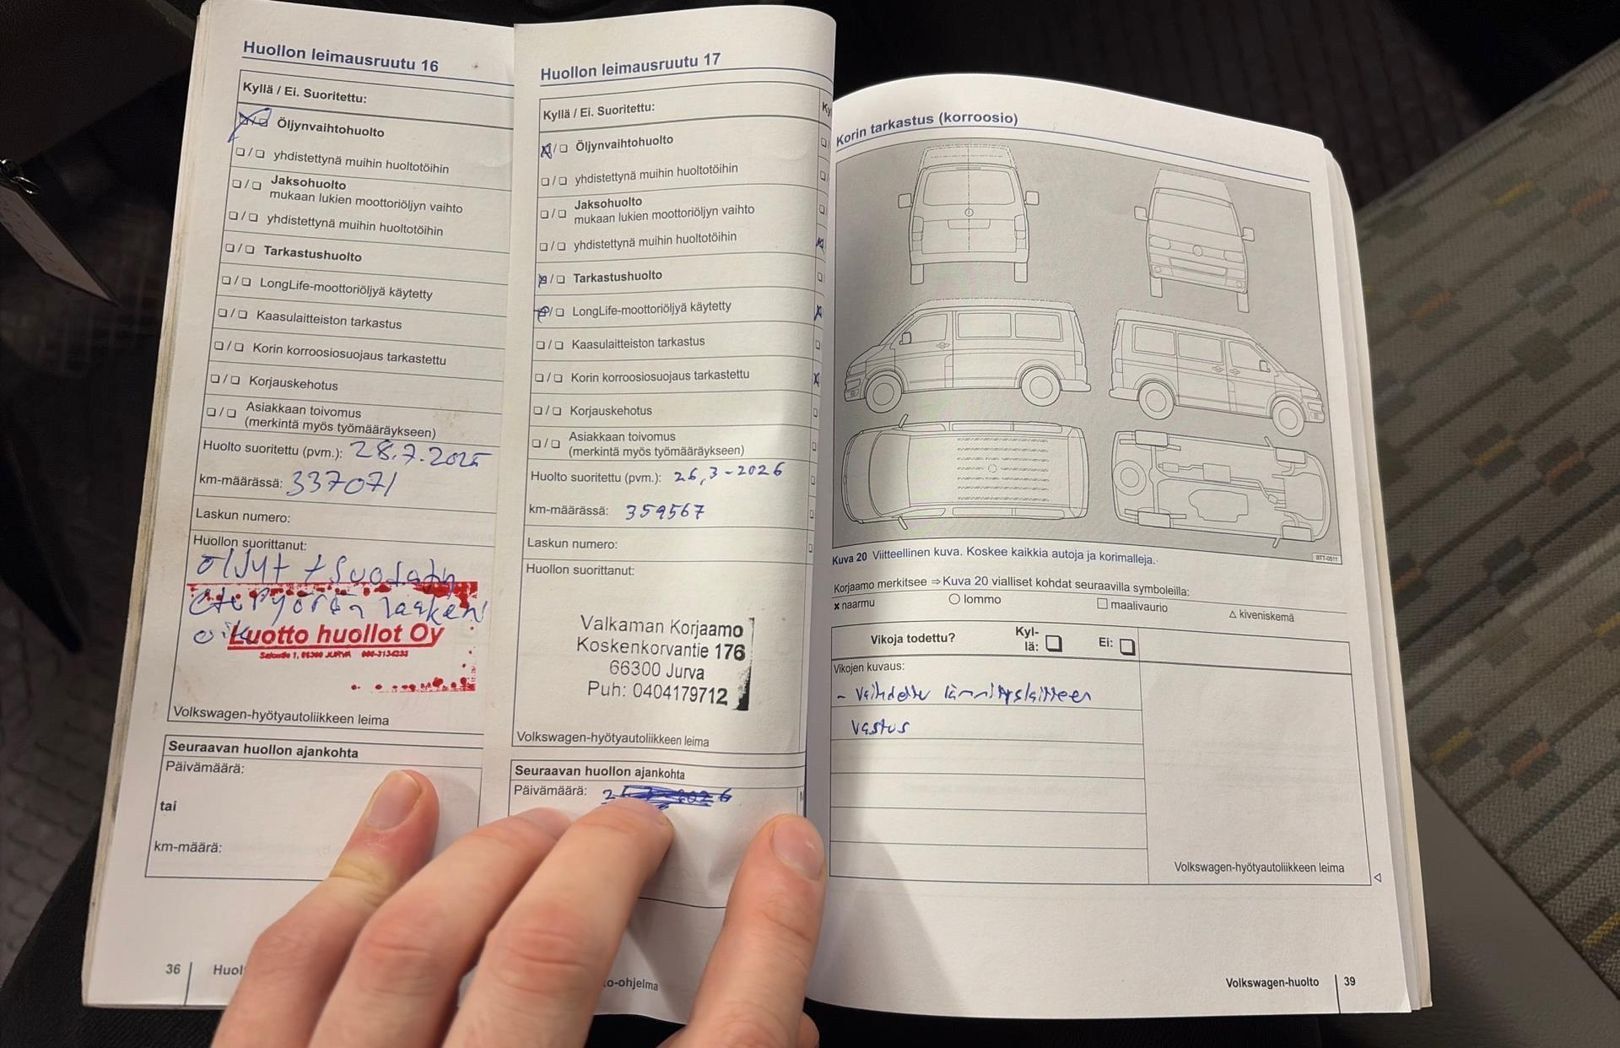 Huollon leimausruutu 16
Kyllä / Ei. Suoritettu:
Öljynvaihtohuolto
yhdistettynä muihin huoltotöihin
Jaksohuolto
mukaan lukien moottoriöljyn vaihto
yhdistettynä muihin huoltotöihin
Tarkastushuolto
LongLife-moottoriöljyä käytetty
Kaasulaitteiston tarkastus
Korin korroosiosuojaus tarkastettu
Korjauskehotus
Asiakkaan toivomus
(merkintä myös työmääräykseen)
Huolto suoritettu (pvm.): 28.7.2025
km-määrässä: 337071
Laskun numero:
Huollon suorittanut:
öljyt + suodatin
Luotto huollot Oy
Volkswagen-hyötyautoliikkeen leima
Seuraavan huollon ajankohta
Päivämäärä:
tai
km-määrä:
36
Huollon leimausruutu 17
Kyllä / Ei. Suoritettu:
Öljynvaihtohuolto
yhdistettynä muihin huoltotöihin
Jaksohuolto
mukaan lukien moottoriöljyn vaihto
yhdistettynä muihin huoltotöihin
Tarkastushuolto
LongLife-moottoriöljyä käytetty
Kaasulaitteiston tarkastus
Korin korroosiosuojaus tarkastettu
Korjauskehotus
Asiakkaan toivomus
(merkintä myös työmääräykseen)
Huolto suoritettu (pvm.): 26,3-2026
km-määrässä: 359567
Laskun numero:
Huollon suorittanut:
Valkaman Korjaamo
Koskenkorvantie 176
66300 Jurva
Puh: 0404179712
Volkswagen-hyötyautoliikkeen leima
Seuraavan huollon ajankohta
Päivämäärä:
Korin tarkastus (korroosio)
Kuva 20 Viitteellinen kuva. Koskee kaikkia autoja ja korimalleja.
Korjaamo merkitsee ⇒ Kuva 20 vialliset kohdat seuraavilla symboleilla:
x naarmu ○ lommo □ maalivaurio △ kiveniskemä
Vikoja todettu? Kyl-
lä: Ei:
Vikojen kuvaus:
- Vaihdettu lämmityslaitteen
vastus
Volkswagen-hyötyautoliikkeen leima
Volkswagen-huolto 39